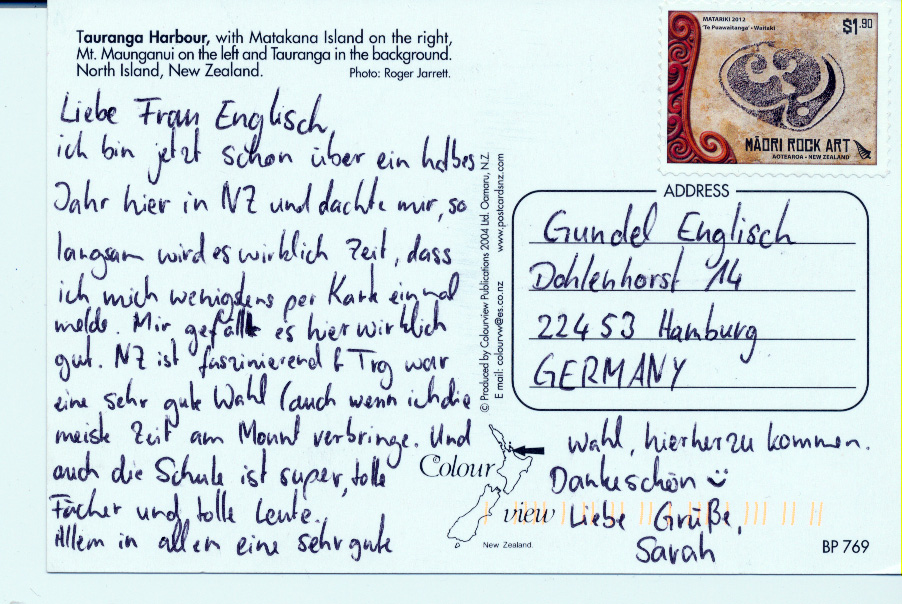 Tauranga Harbour, with Matakana Island on the right,
Mt. Maunganui on the left and Tauranga in the background.
North Island, New Zealand. Photo: Roger Jarrett.
Liebe Frau Englisch,
ich bin jetzt schon über ein halbes
Jahr hier in NZ und dachte mir, so
langsam wird es wirklich Zeit, dass
ich mich wenigstens per Karte einmal
melde. Mir gefällt es hier wirklich
gut. NZ ist faszinierend & Trg war
eine sehr gute Wahl (auch wenn ich die
meiste Zeit am Mount verbringe. Und
auch die Schule ist super, tolle
Fächer und tolle Leute.
Allem in allen eine sehr gute
Wahl, hierher zu kommen.
Dankeschön
Liebe Grüße,
Sarah
© Produced by Colourview Publications 2004 Ltd. Oamaru, N.Z.
E mail: colourvw@es.co.nz www.postcardsnz.com
MATARIKI 2012
'Te Puawaitanga' - Waitaki
$1.90
MĀORI ROCK ART
AOTEAROA • NEW ZEALAND
ADDRESS
Gundel Englisch
Dohlenhorst 14
22453 Hamburg
GERMANY
Colour
view
New Zealand.
BP 769